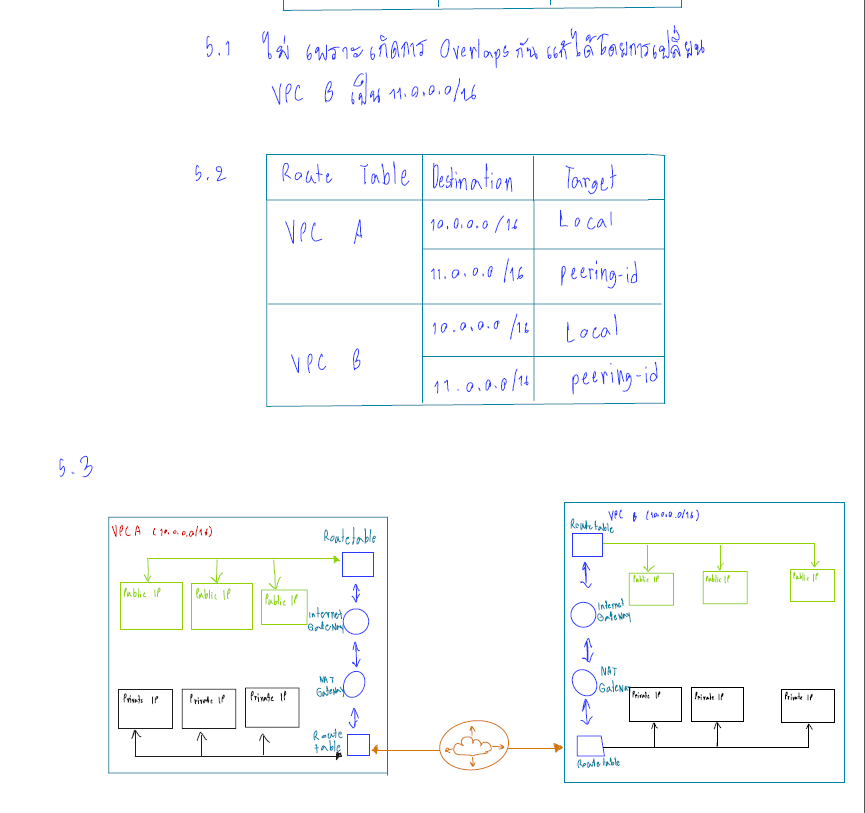 5.1 ไม่ เพราะเกิดการ Overlaps กัน แก้ได้โดยการเปลี่ยน
VPC B เป็น 11.0.0.0/16
5.2
Route Table Destination Target
VPC A 10.0.0.0/16 Local
11.0.0.0/16 peering-id
VPC B 10.0.0.0/16 Local
11.0.0.0/16 peering-id
5.3
VPC A (10.0.0.0/16)
Route table
Public IP Public IP Public IP
Internet
Gateway
NAT
Gateway
Private IP Private IP Private IP
Route
table
VPC B (10.0.0.0/16)
Route table
Public IP Public IP Public IP
Internet
Gateway
NAT
Gateway
Private IP Private IP Private IP
Route table